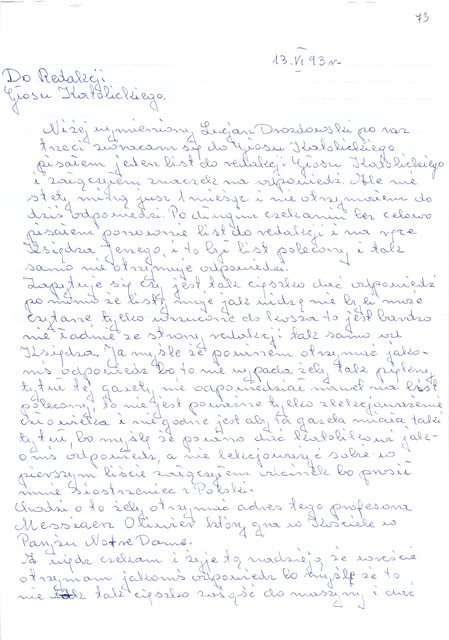 73
13.VI 93 r.
Do Redakcji
Głosu Katolickiego.
Niżej wymieniony Lucjan Drozdowski po raz
trzeci zwracam się do Głosu Katolickiego
pisałem jeden list do redakcji Głosu Katolickiego
i załączyłem znaczek na odpowiedź. Ale nie
stety miną już 1 miesiąc i nie otrzymałem do
dziś odpowiedzi. Po długim czekaniu bez celowo
pisałem ponownie list do redakcji i na ręce
Księdza Jenego, i to był list polecony i tak
samo nie otrzymuje odpowiedzi.
Zapytuje się czy jest tak ciężko dać odpowiedź
po mimo że listy moje jak widzę nie byli może
czytane tylko wrzucone do kosza to jest bardzo
nie ładnie ze strony redakcji tak samo od
Księdza. Ja myśle że powinem otrzymać jako-
mś odpowiedź bo to nie wypada żeby tak piękny
tytuł tej gazety nie odpowiedział nawet na list
polecony, to nie jest poważne tylko zlekcjoważenie
człowieka i niegodne jest aby ta gazeta miała taki
tytuł, bo myślę że prawo dać katolikowi jak-
omś odpowiedź, a nie lekcjoważyć sobie w
pierszym liście załączyłem odcinek bo prosił
mnie siostrzeniec z Polski.
Chodzi o to żeby otrzymać adres tego profesora
Messiaen Olivier który gra w Kościele w
Paryżu Notre Dame.
A więdz czekam i żyję tą nadzieją że wreście
otrzymam jakomś odpowiedź bo myślę że to
nie tak ciężko zasąść do maszyny i dać